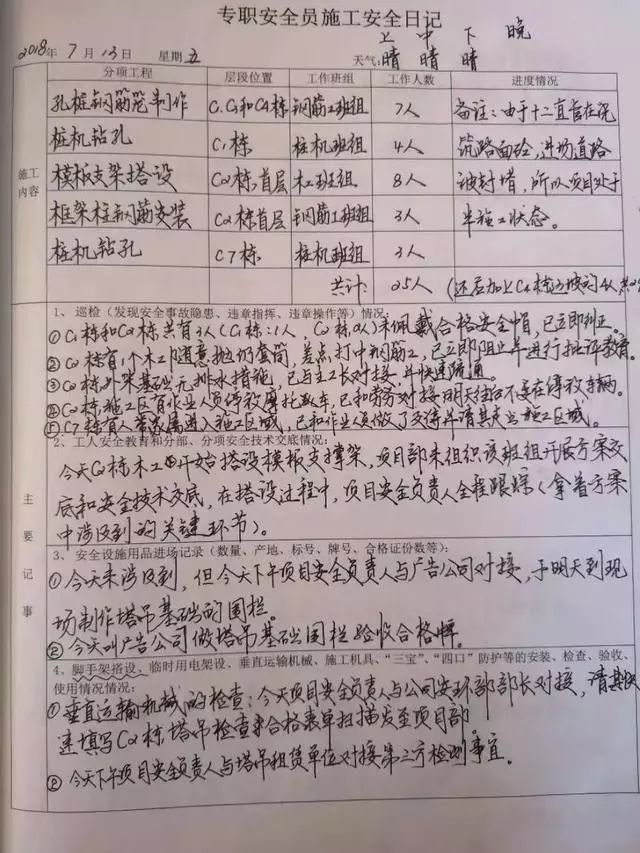 专职安全员施工安全日记
上 中 下 晚
2018年 7月 13日 星期五 天气: 晴 晴 晴
分项工程 层段位置 工作班组 工作人数 进度情况
孔桩钢筋笼制作 钢筋工班组 7人 备注:由于十二直管在浇
桩机钻孔 C1栋 桩机班组 4人 筑路面砼,进场道路
施工内容
模板支架搭设 C2栋首层 木工班组 8人 被封堵,所以项目处于
框架柱钢筋安装 C2栋首层 钢筋工班组 3人 半施工状态。
桩机钻孔 C7栋 桩机班组 3人
共计: 25人
1、巡检(发现安全事故隐患、违章指挥、违章操作等)情况:
① C1栋和C2栋共有3人(C1栋:1人,C2栋2人)未佩戴合格安全帽,已立即纠正。
② C2栋有1个木工随意抛扔套筒,差点打中钢筋工,已立即阻止并进行批评教育。
③ C2栋外架基础无排水措施,已与主工长对接,并快速疏通。
④ C2栋施工区有作业人员停放摩托车,已和劳务对接明天往后不要在停放车辆。
⑤ C7栋有人带家属进入施工区域,已和作业人员做了交待并请其走出施工区域。
2、工人安全教育和分部、分项安全技术交底情况:
今天C2栋木工开始搭设模板支撑架,项目部未组织该班组开展方案交
底和安全技术交底,在搭设过程中,项目安全负责人全程跟踪(拿着方案
中涉及到的关键环节)。
主要记事
3、安全设施用品进场记录(数量、产地、标号、牌号、合格证份数等):
① 今天未涉及到,但今天下午项目安全负责人与广告公司对接,于明天到现
场制作塔吊基础的围栏。
② 今天叫广告公司做塔吊基础围栏验收合格牌。
4、脚手架搭设、临时用电架设、垂直运输机械、施工机具、“三宝”、“四口”防护等的安装、检查、验收、
使用情况情况:
① 垂直运输机械的检查:今天项目安全负责人与公司安环部部长对接,请其快
速填写C2栋塔吊检查合格表单扫描发至项目部。
② 今天下午项目安全负责人与塔吊租赁单位对接第三方检测事宜。